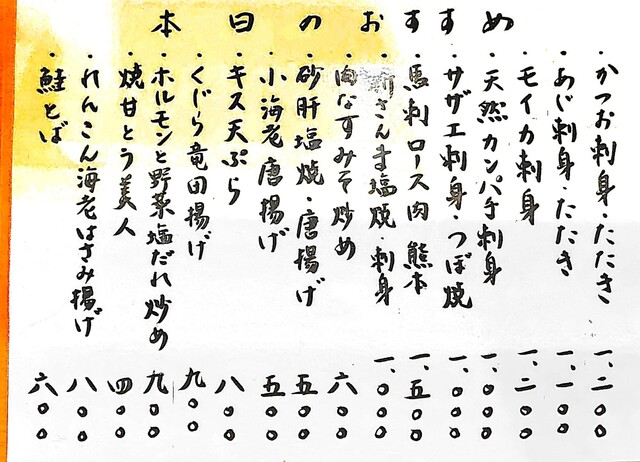 本日のおすすめ
・かつお刺身・たたき 一、二〇〇
・あじ刺身・たたき 一、一〇〇
・モイカ刺身 一、二〇〇
・天然カンパチ刺身 一、〇〇〇
・サザエ刺身・つぼ焼 一、〇〇〇
・馬刺ロース肉 熊本 一、五〇〇
・新さんま塩焼・刺身 一、〇〇〇
・肉なすみそ炒め 六〇〇
・砂肝塩焼・唐揚げ 五〇〇
・小海老唐揚げ 五〇〇
・キス天ぷら 八〇〇
・くじら竜田揚げ 九〇〇
・ホルモンと野菜塩だれ炒め 九〇〇
・焼甘とう美人 四〇〇
・れんこん海老はさみ揚げ 八〇〇
・鮭とば 六〇〇